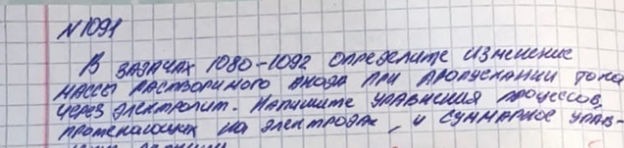 N 1091
В задачах 1080-1092 определите изменение
массы растворимого анода при пропускании тока
через электролит. Напишите уравнения процессов,
протекающих на электродах, и суммарное урав-